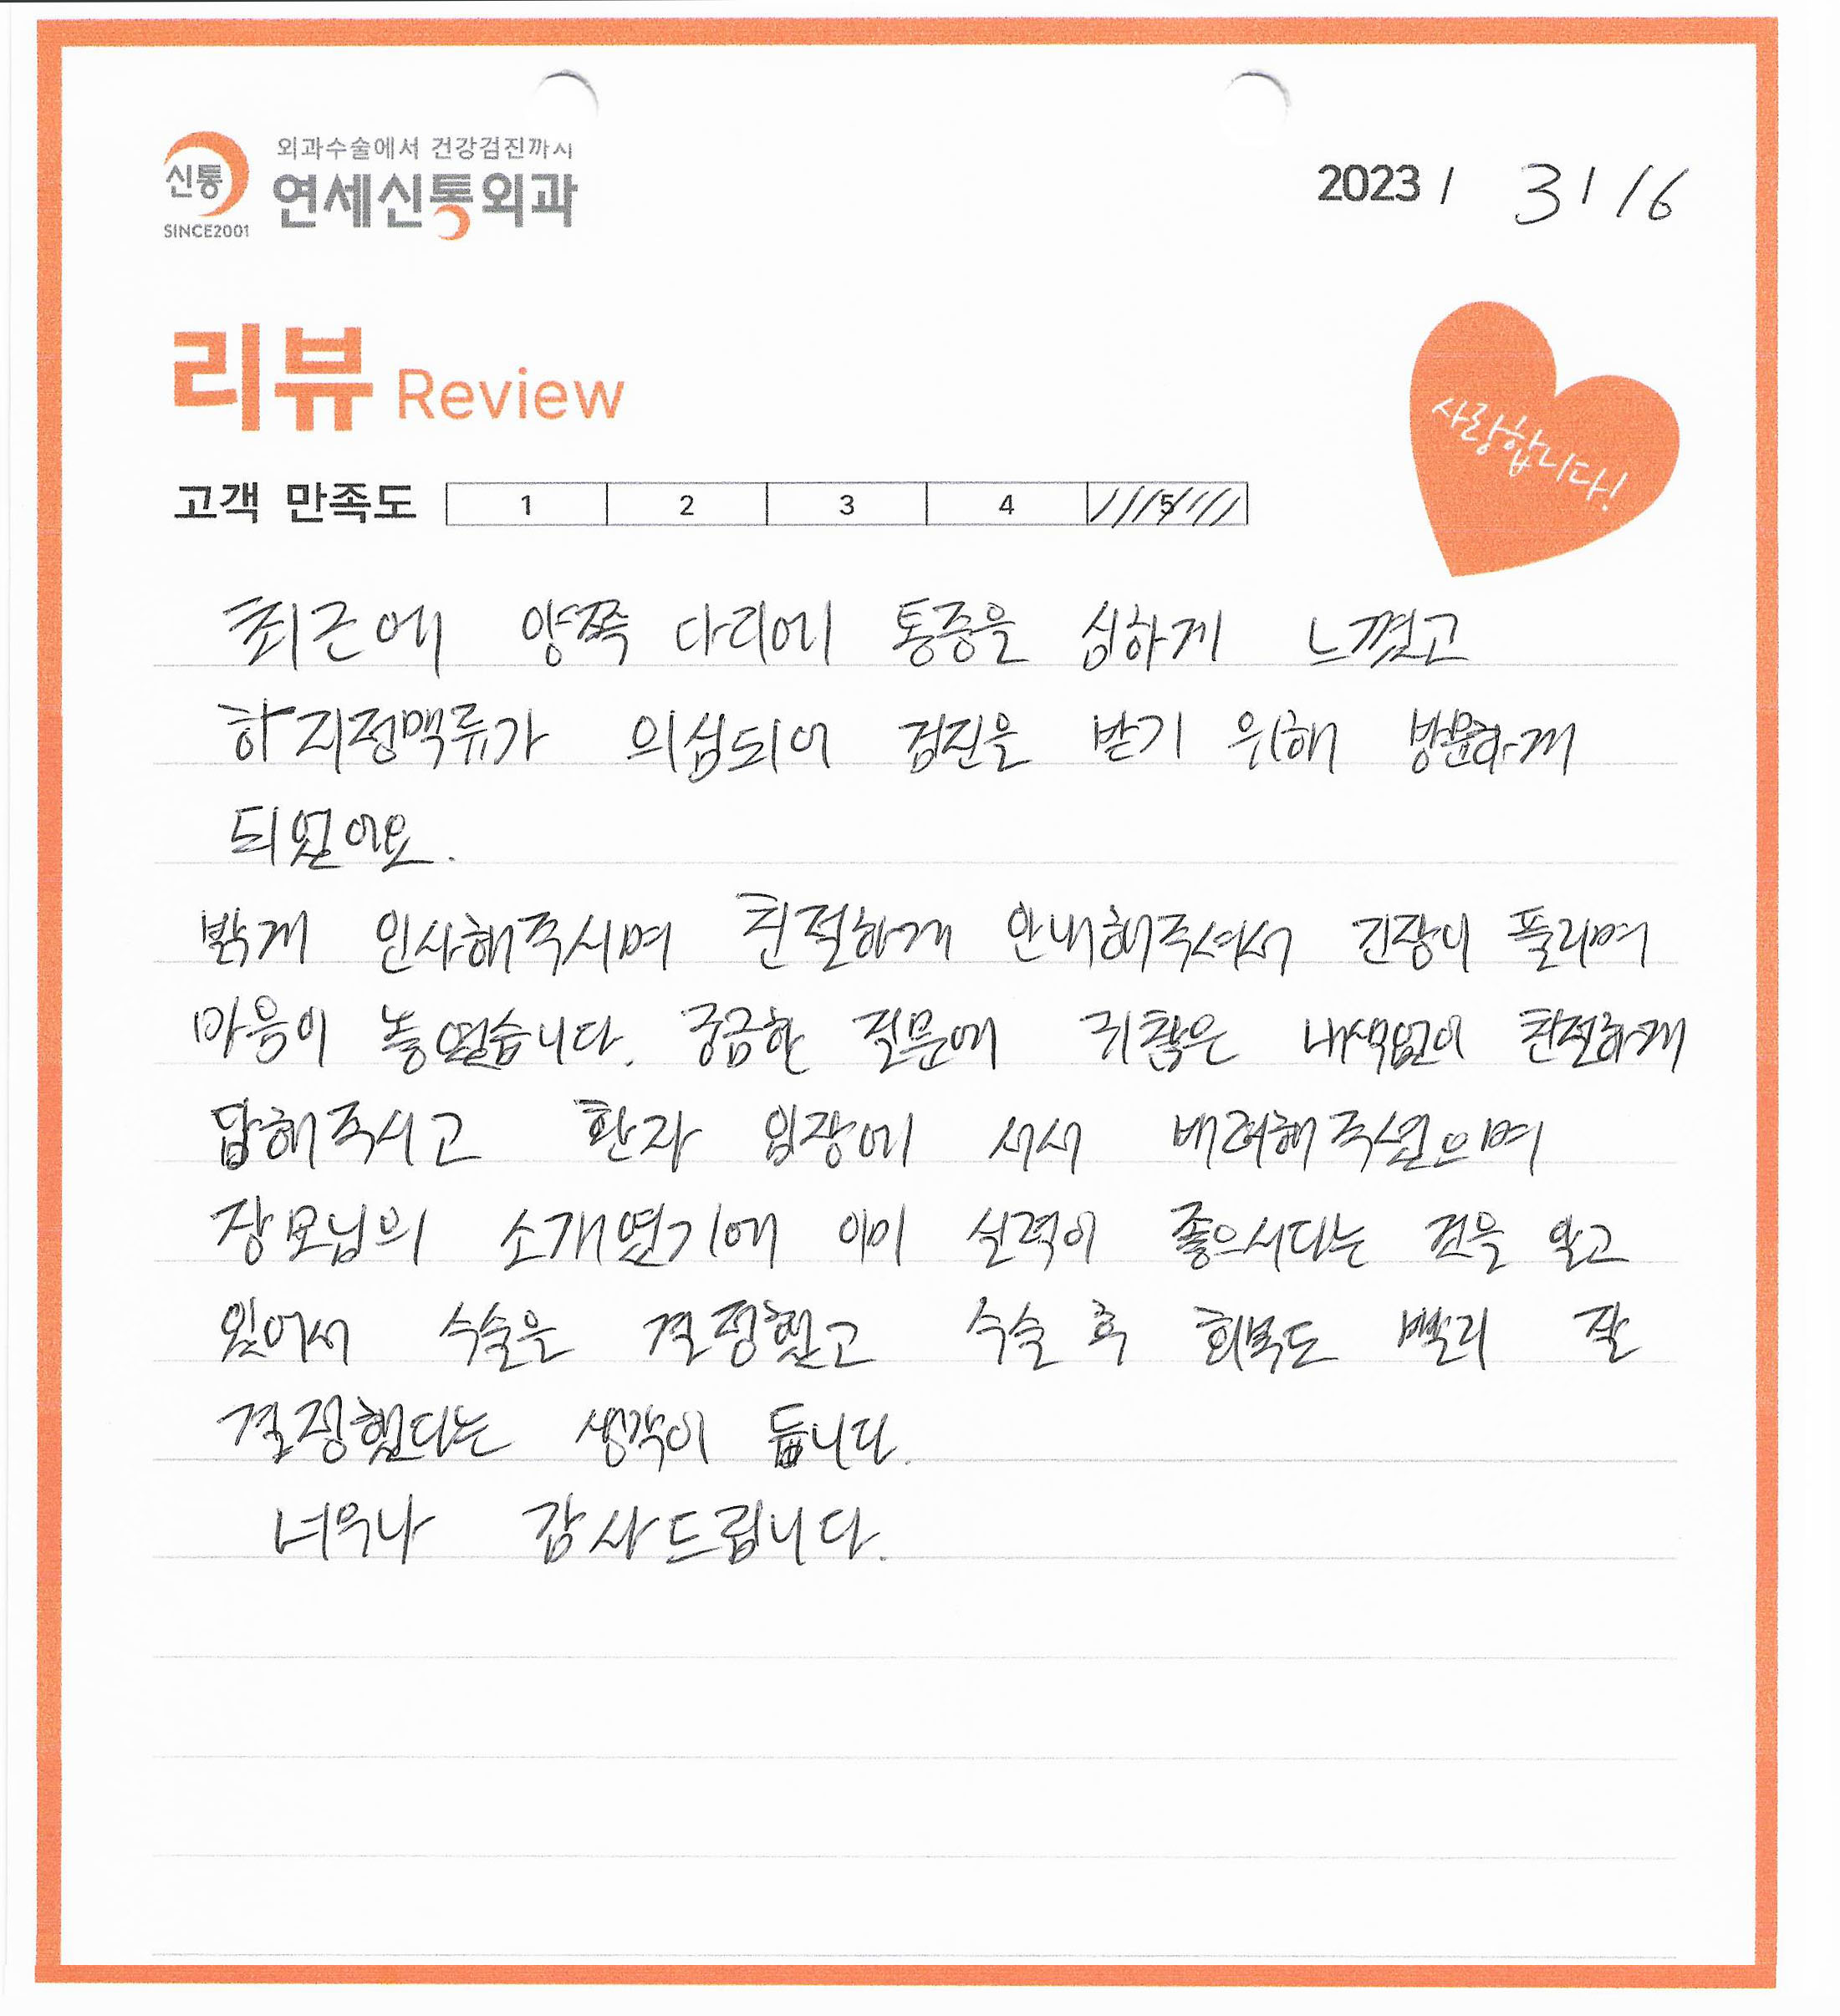 신통
SINCE2001
외과수술에서 건강검진까지
연세신통외과
2023 / 3 / 16
리뷰 Review
사랑합니다!
고객 만족도 1 2 3 4 5
최근에 양쪽 다리에 통증을 심하게 느꼈고
하지정맥류가 의심되어 검진을 받기 위해 방문하게
되었어요.
밝게 인사해주시며 친절하게 안내해주셔서 긴장이 풀리며
마음이 놓였습니다. 궁금한 질문에 귀찮은 내색없이 친절하게
답해주시고 환자 입장에 서서 배려해주셨으며
장모님의 소개였기에 이미 실력이 좋으시다는 건을 알고
있어서 수술은 결정했고 수술 후 회복도 빨리 잘
결정했다는 생각이 듭니다.
너무나 감사드립니다.